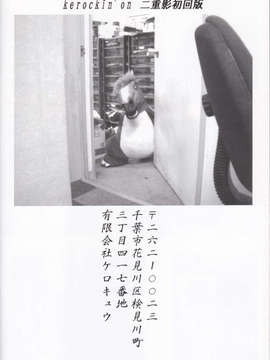 kerockin' on 二重影初回版
〒二六二－〇〇二三
千葉市花見川区検見川町
三丁目四一七番地
有限会社ケロキュウ